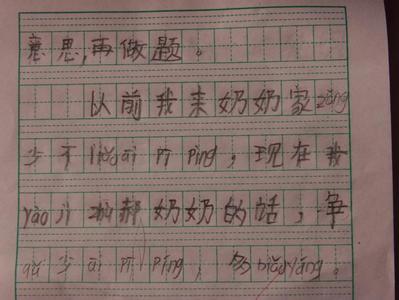 意思,再做题。
以前我来奶奶家zǒng
少不liǎoái pī píng,现在我
yào jì 奶奶的话,争
qǔ 少 ái pī píng,多biǎoyáng。